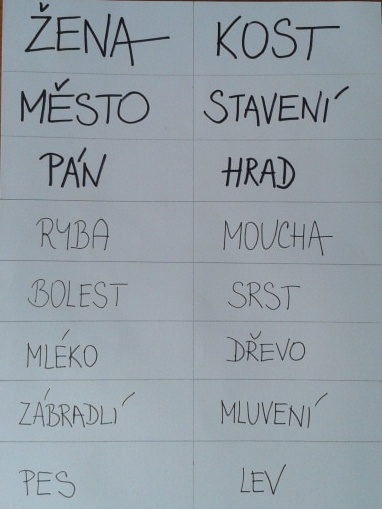 ŽENA KOST
MĚSTO STAVENÍ
PÁN HRAD
RYBA MOUCHA
BOLEST SRST
MLÉKO DŘEVO
ZÁBRADLÍ MLUVENÍ
PES LEV